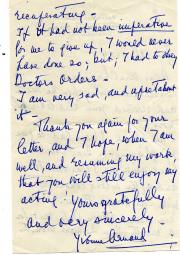 recuperating -
If it had not been imperative
for me to give up, I would never
have done so; but, I had to obey
Doctors Orders -
I am very sad, and upset about
it -
Thank you again for your
letter, and I hope, when I am
well, and resuming my work,
that you will still enjoy my
acting. Yours gratefully
and very sincerely -
Yvonne Arnaud